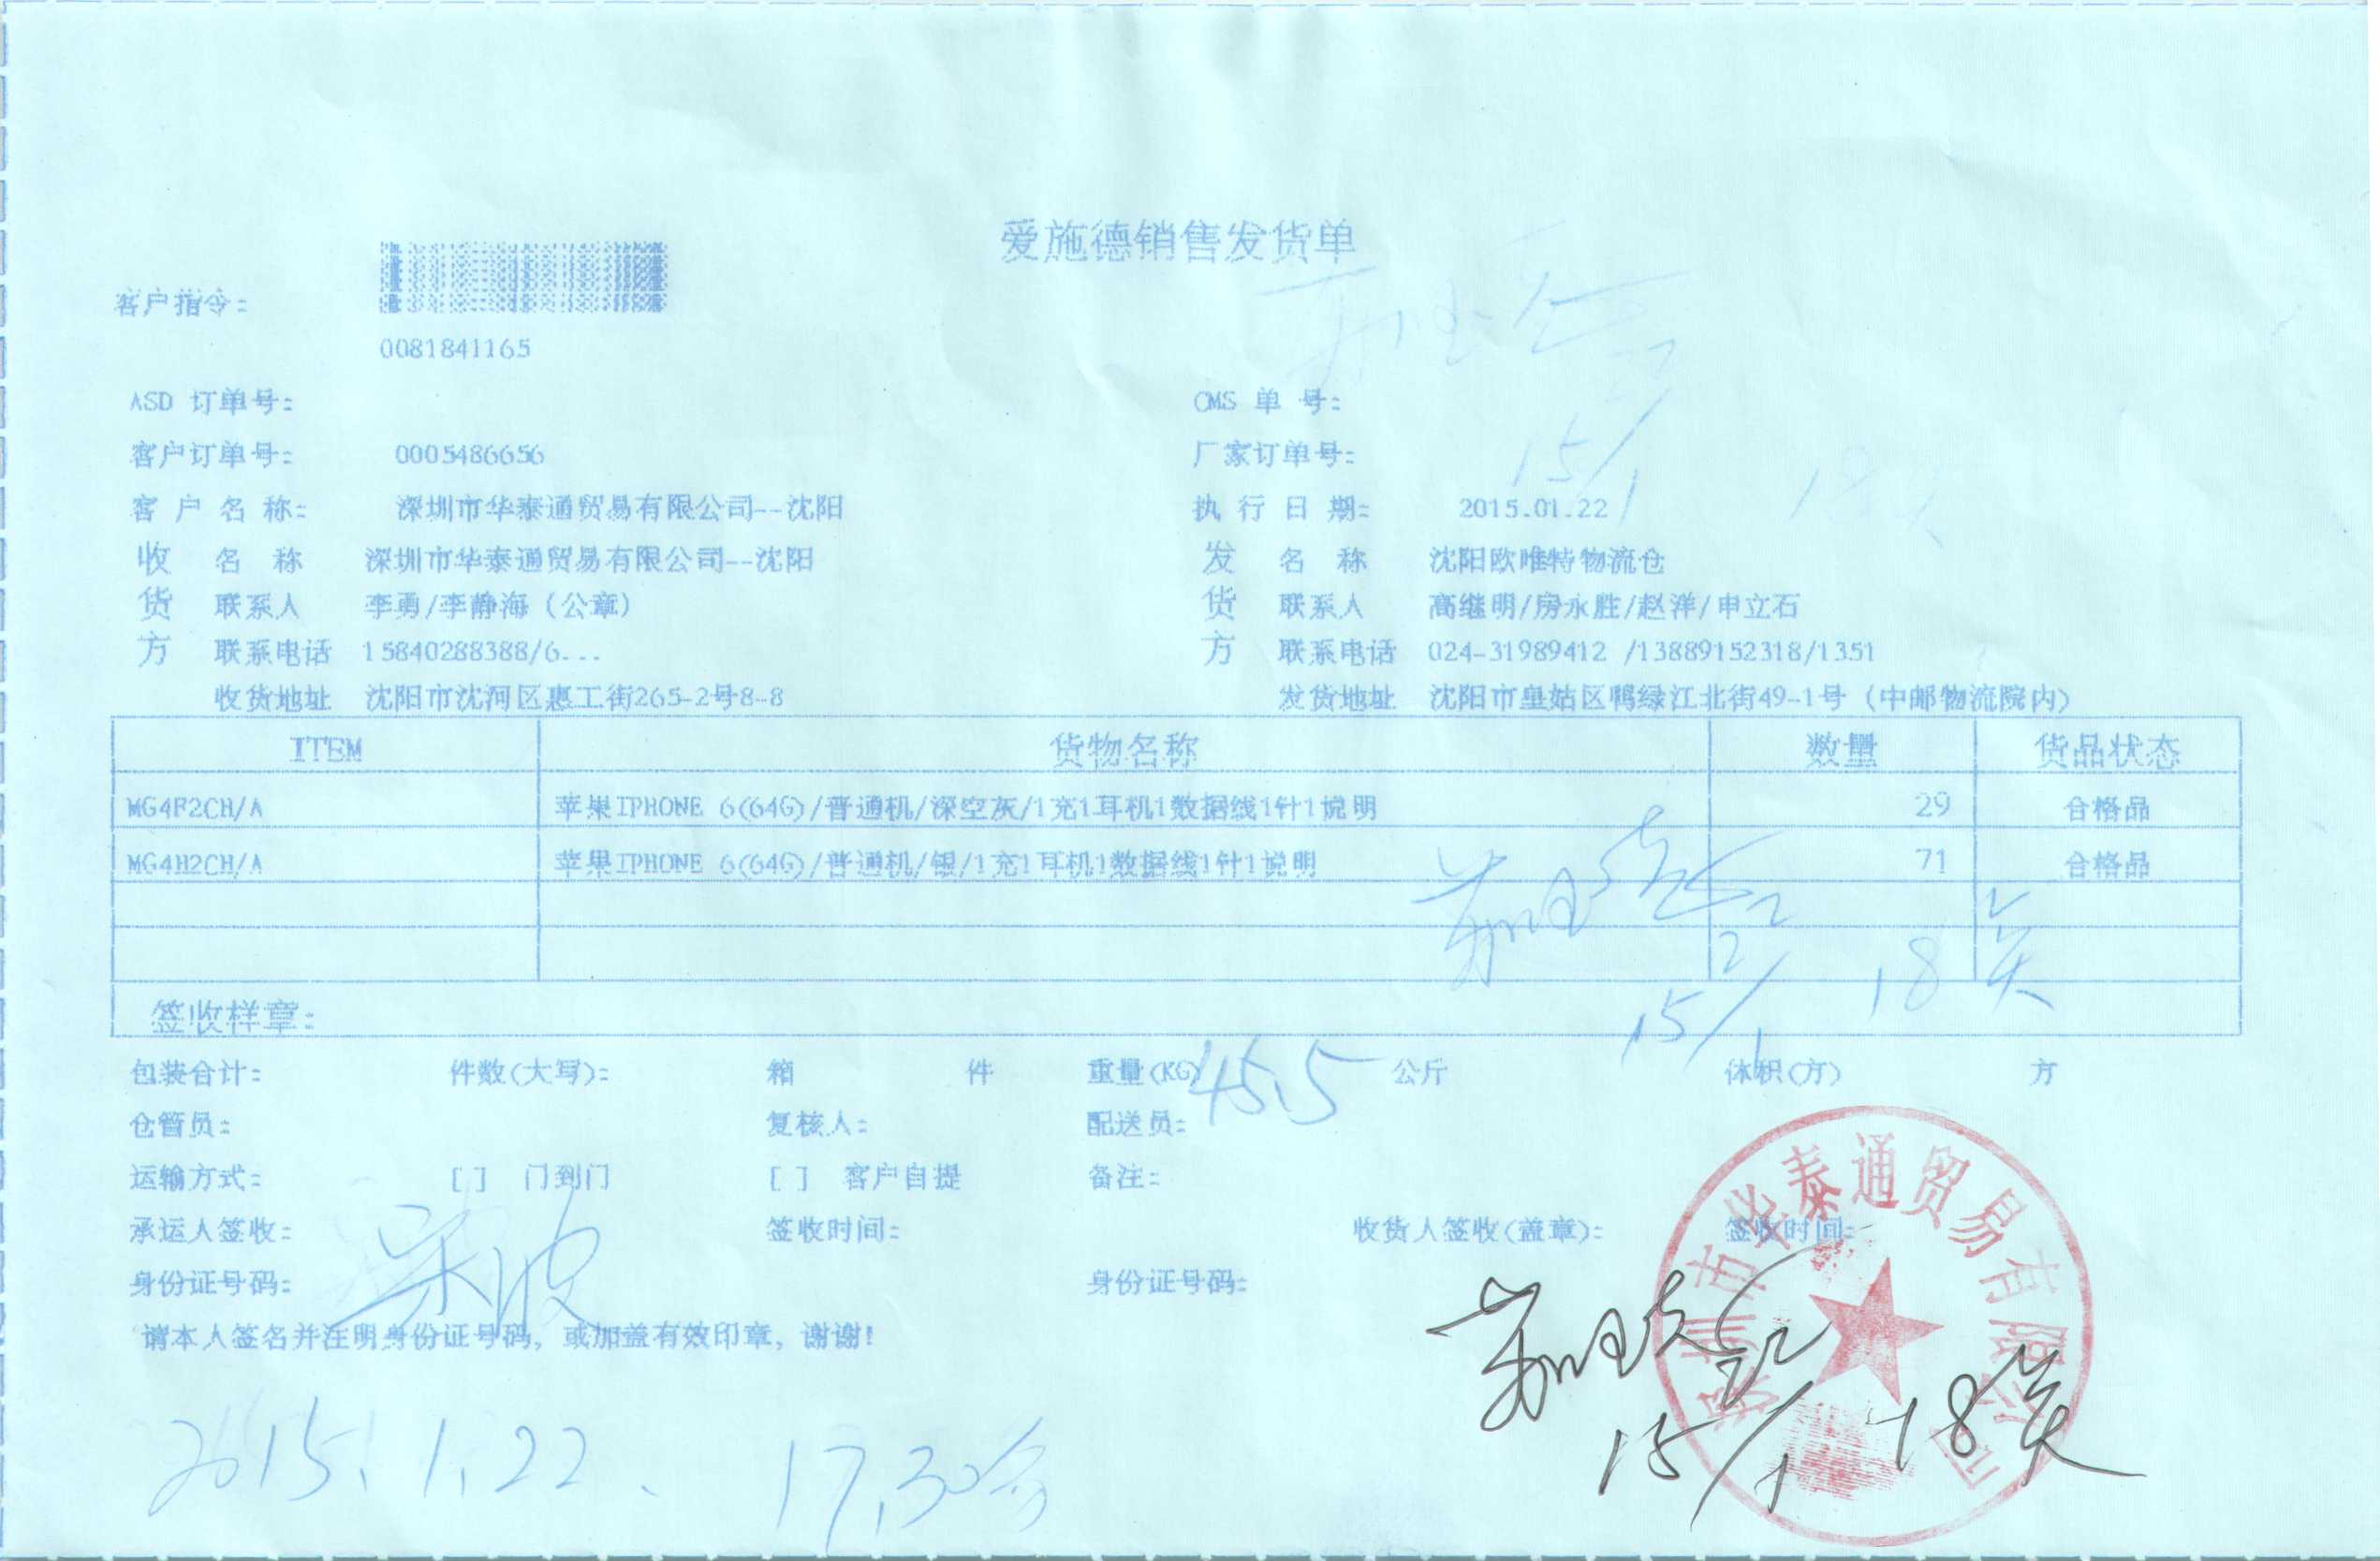 爱施德销售发货单
客户指令:
0081841165
ASD 订单号: OMS 单 号:
客户订单号: 0005486656 厂家订单号:
客 户 名 称: 深圳市华泰通贸易有限公司--沈阳 执 行 日 期: 2015.01.22
收 名 称 深圳市华泰通贸易有限公司--沈阳 发 名 称 沈阳欧唯特物流仓
货 联系人 李勇/李静海（公章） 货 联系人 高继明/房永胜/赵洋/申立石
方 联系电话 15840288388/6... 方 联系电话 024-31989412 /13889152318/1351
收货地址 沈阳市沈河区惠工街265-2号8-8 发货地址 沈阳市皇姑区鸭绿江北街49-1号（中邮物流院内）
ITEM 货物名称 数量 货品状态
MG4F2CH/A 苹果IPHONE 6(64G)/普通机/深空灰/1充1耳机1数据线1针1说明 29 合格品
MG4H2CH/A 苹果IPHONE 6(64G)/普通机/银/1充1耳机1数据线1针1说明 71 合格品
签收样章:
包装合计: 件数(大写): 箱 件 重量(KG) 45.5 公斤 体积(方) 方
仓管员: 复核人: 配送员:
运输方式: [ ] 门到门 [ ] 客户自提 备注:
承运人签收: 宋波 签收时间: 收货人签收(盖章): 签收时间:
身份证号码: 身份证号码:
请本人签名并注明身份证号码，或加盖有效印章，谢谢！
深圳市华泰通贸易有限公司
22
15/1 18
2015.1.22. 17.30